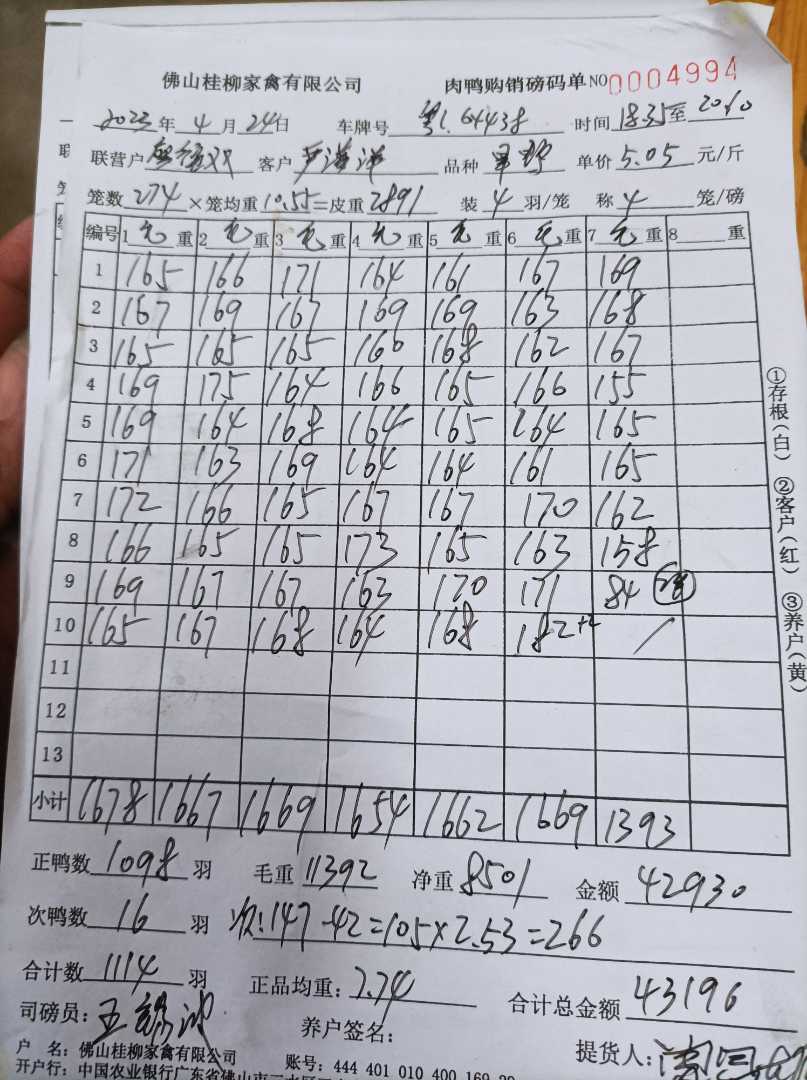 佛山桂柳家禽有限公司 肉鸭购销磅码单 NO 0004994
2023年4月24日 车牌号 时间 18:35至20:10
联营户 客户 品种 单价 5.05 元/斤
笼数 274 ×笼均重 10.55 =皮重 2891 装 4 羽/笼 称 4 笼/磅
编号 1 毛 重 2 毛 重 3 毛 重 4 毛 重 5 毛 重 6 毛 重 7 毛 重 8 重
1 165 166 171 164 161 167 169
2 167 169 167 169 169 163 168
3 165 165 165 160 168 162 167
4 169 175 164 166 165 166 155
5 169 164 168 164 165 164 165
6 171 163 169 164 164 161 165
7 172 166 165 167 167 170 162
8 166 165 165 173 165 163 158
9 169 167 167 163 170 171 84
10 165 167 168 164 168 182+2 /
11
12
13
小计 1678 1667 1669 1654 1662 1669 1393
正鸭数 1098 羽 毛重 11392 净重 8501 金额 42930
次鸭数 16 羽 次:147-42=105×2.53=266
合计数 1114 羽 正品均重: 7.74 合计总金额 43196
司磅员: 养户签名: 提货人:
户 名: 佛山桂柳家禽有限公司 账号: 444 401 010 400 169 29
开户行: 中国农业银行广东省佛山市三水区
①存根(白) ②客户(红) ③养户(黄)